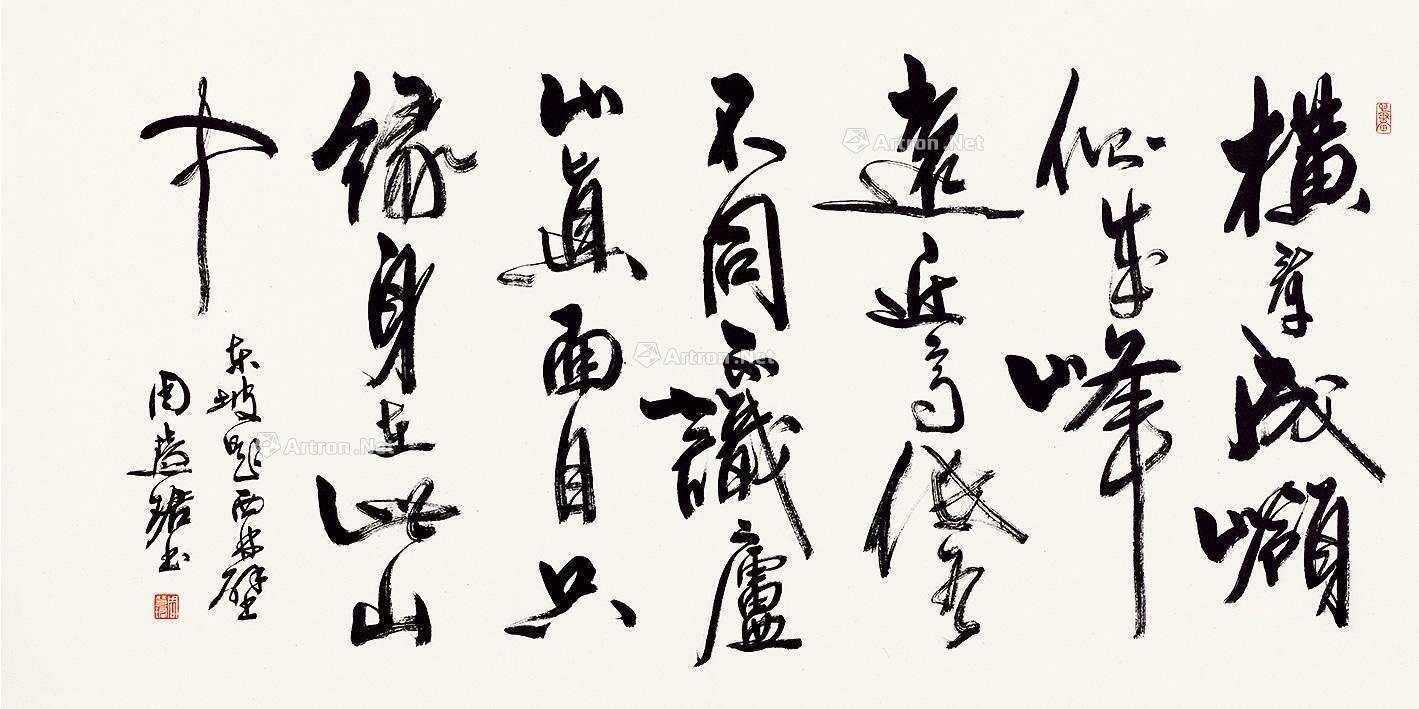 橫看成嶺
側成峰
遠近高低各
不同不識廬
山真面目只
緣身在此山
中
东坡題西林壁
周慧珺书
Artron.Net
Artron.Net
Artron.Net